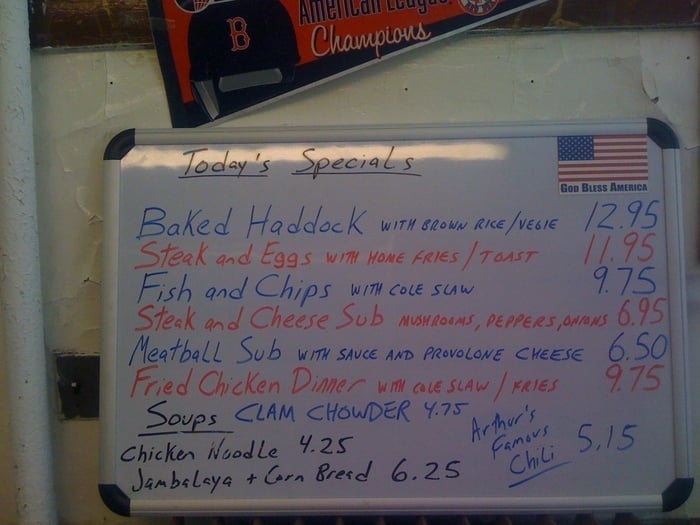 American League
Champions
B
Today's Specials
GOD BLESS AMERICA
Baked Haddock WITH BROWN RICE/VEGIE 12.95
Steak and Eggs WITH HOME FRIES / TOAST 11.95
Fish and Chips WITH COLE SLAW 9.75
Steak and Cheese Sub MUSHROOMS, PEPPERS, ONIONS 6.95
Meatball Sub WITH SAUCE AND PROVOLONE CHEESE 6.50
Fried Chicken Dinner WITH COLE SLAW / FRIES 9.75
Soups CLAM CHOWDER 4.75
Chicken Noodle 4.25
Jambalaya + Corn Bread 6.25
Arthur's
Famous
Chili 5.15